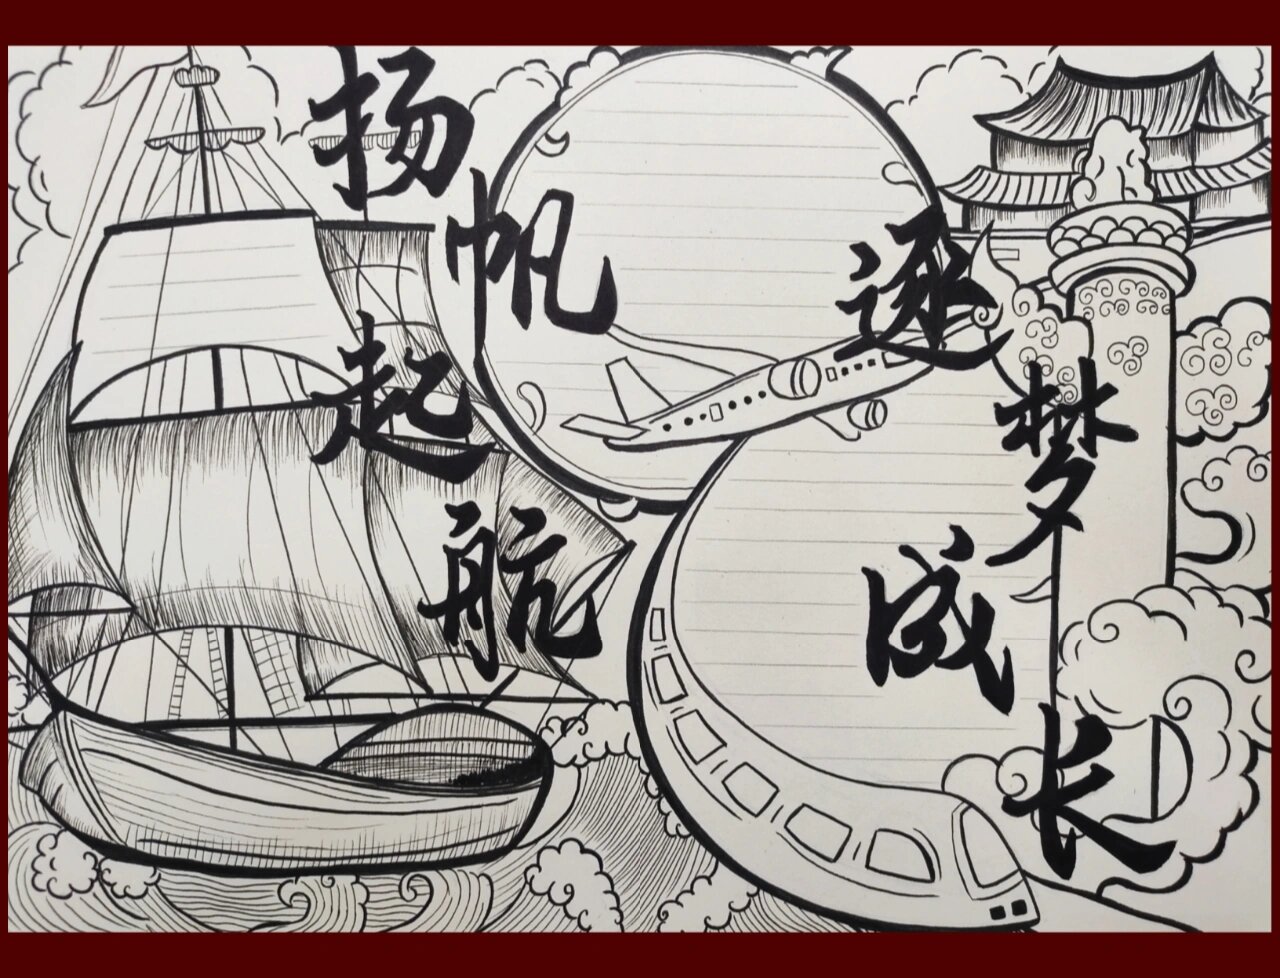 扬帆起航
逐梦成长